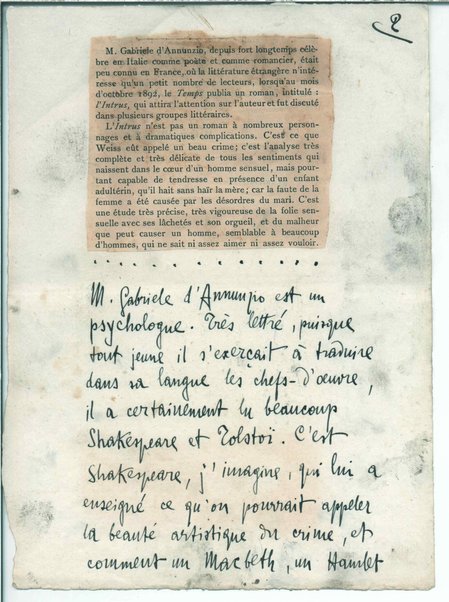 2
M. Gabriele d'Annunzio, depuis fort longtemps célè-
bre en Italie comme poète et comme romancier, était
peu connu en France, où la littérature étrangère n'inté-
resse qu'un petit nombre de lecteurs, lorsqu'au mois
d'octobre 1892, le Temps publia un roman, intitulé :
l'Intrus, qui attira l'attention sur l'auteur et fut discuté
dans plusieurs groupes littéraires.
L'Intrus n'est pas un roman à nombreux person-
nages et à dramatiques complications. C'est ce que
Weiss eût appelé un beau crime; c'est l'analyse très
complète et très délicate de tous les sentiments qui
naissent dans le cœur d'un homme sensuel, mais pour-
tant capable de tendresse en présence d'un enfant
adultérin, qu'il hait sans haïr la mère; car la faute de la
femme a été causée par les désordres du mari. C'est
une étude très précise, très vigoureuse de la folie sen-
suelle avec ses lâchetés et son orgueil, et du malheur
que peut causer un homme, semblable à beaucoup
d'hommes, qui ne sait ni assez aimer ni assez vouloir.
M. Gabriele d'Annunzio est un
psychologue. Très lettré, puisque
tout jeune il s'exerçait à traduire
dans sa langue les chefs-d'œuvre,
il a certainement lu beaucoup
Shakespeare et Tolstoï. C'est
Shakespeare, j'imagine, qui lui a
enseigné ce qu'on pourrait appeler
la beauté artistique du crime, et
comment un Macbeth, un Hamlet